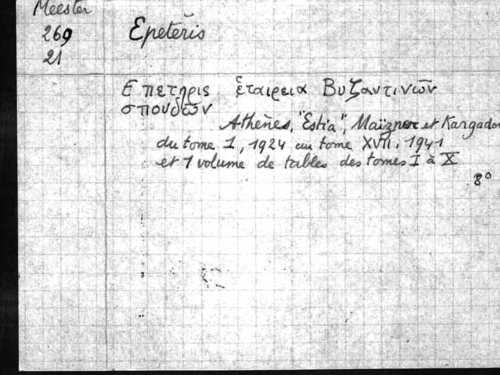 Meester
269
21
Epeteris
Επετηρις ἑταιρεια Βυζαντινῶν
σπουδῶν
Athènes, "Estia", Maïzner et Kargadou
du tome I, 1924 au tome XVII, 1941
et 1 volume de tables des tomes I à X
8°